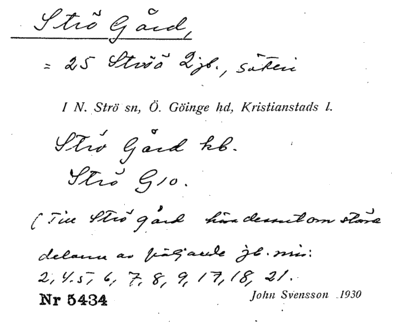 Strö Gård,
= 25 Strö 2 jb., säteri
I N. Strö sn, Ö. Göinge hd, Kristianstads l.
Strö Gård kb.
Strö G10.
(Till Strö gård höra dessutom större
delarna av följande jb. nris:
2, 4.5, 6, 7, 8, 9, 17, 18, 21.
Nr 5434 John Svensson 1930